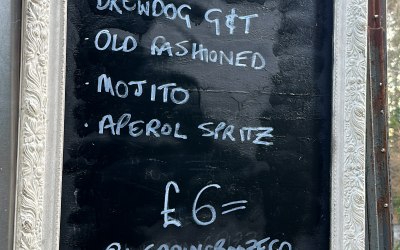 BREWDOG G&T
· OLD FASHIONED
· MOJITO
· APEROL SPRITZ
£6=